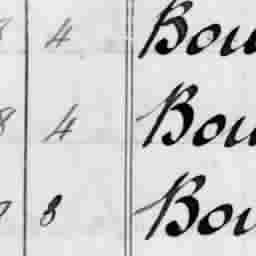 8 4 Bou
8 4 Bou
7 8 Bou